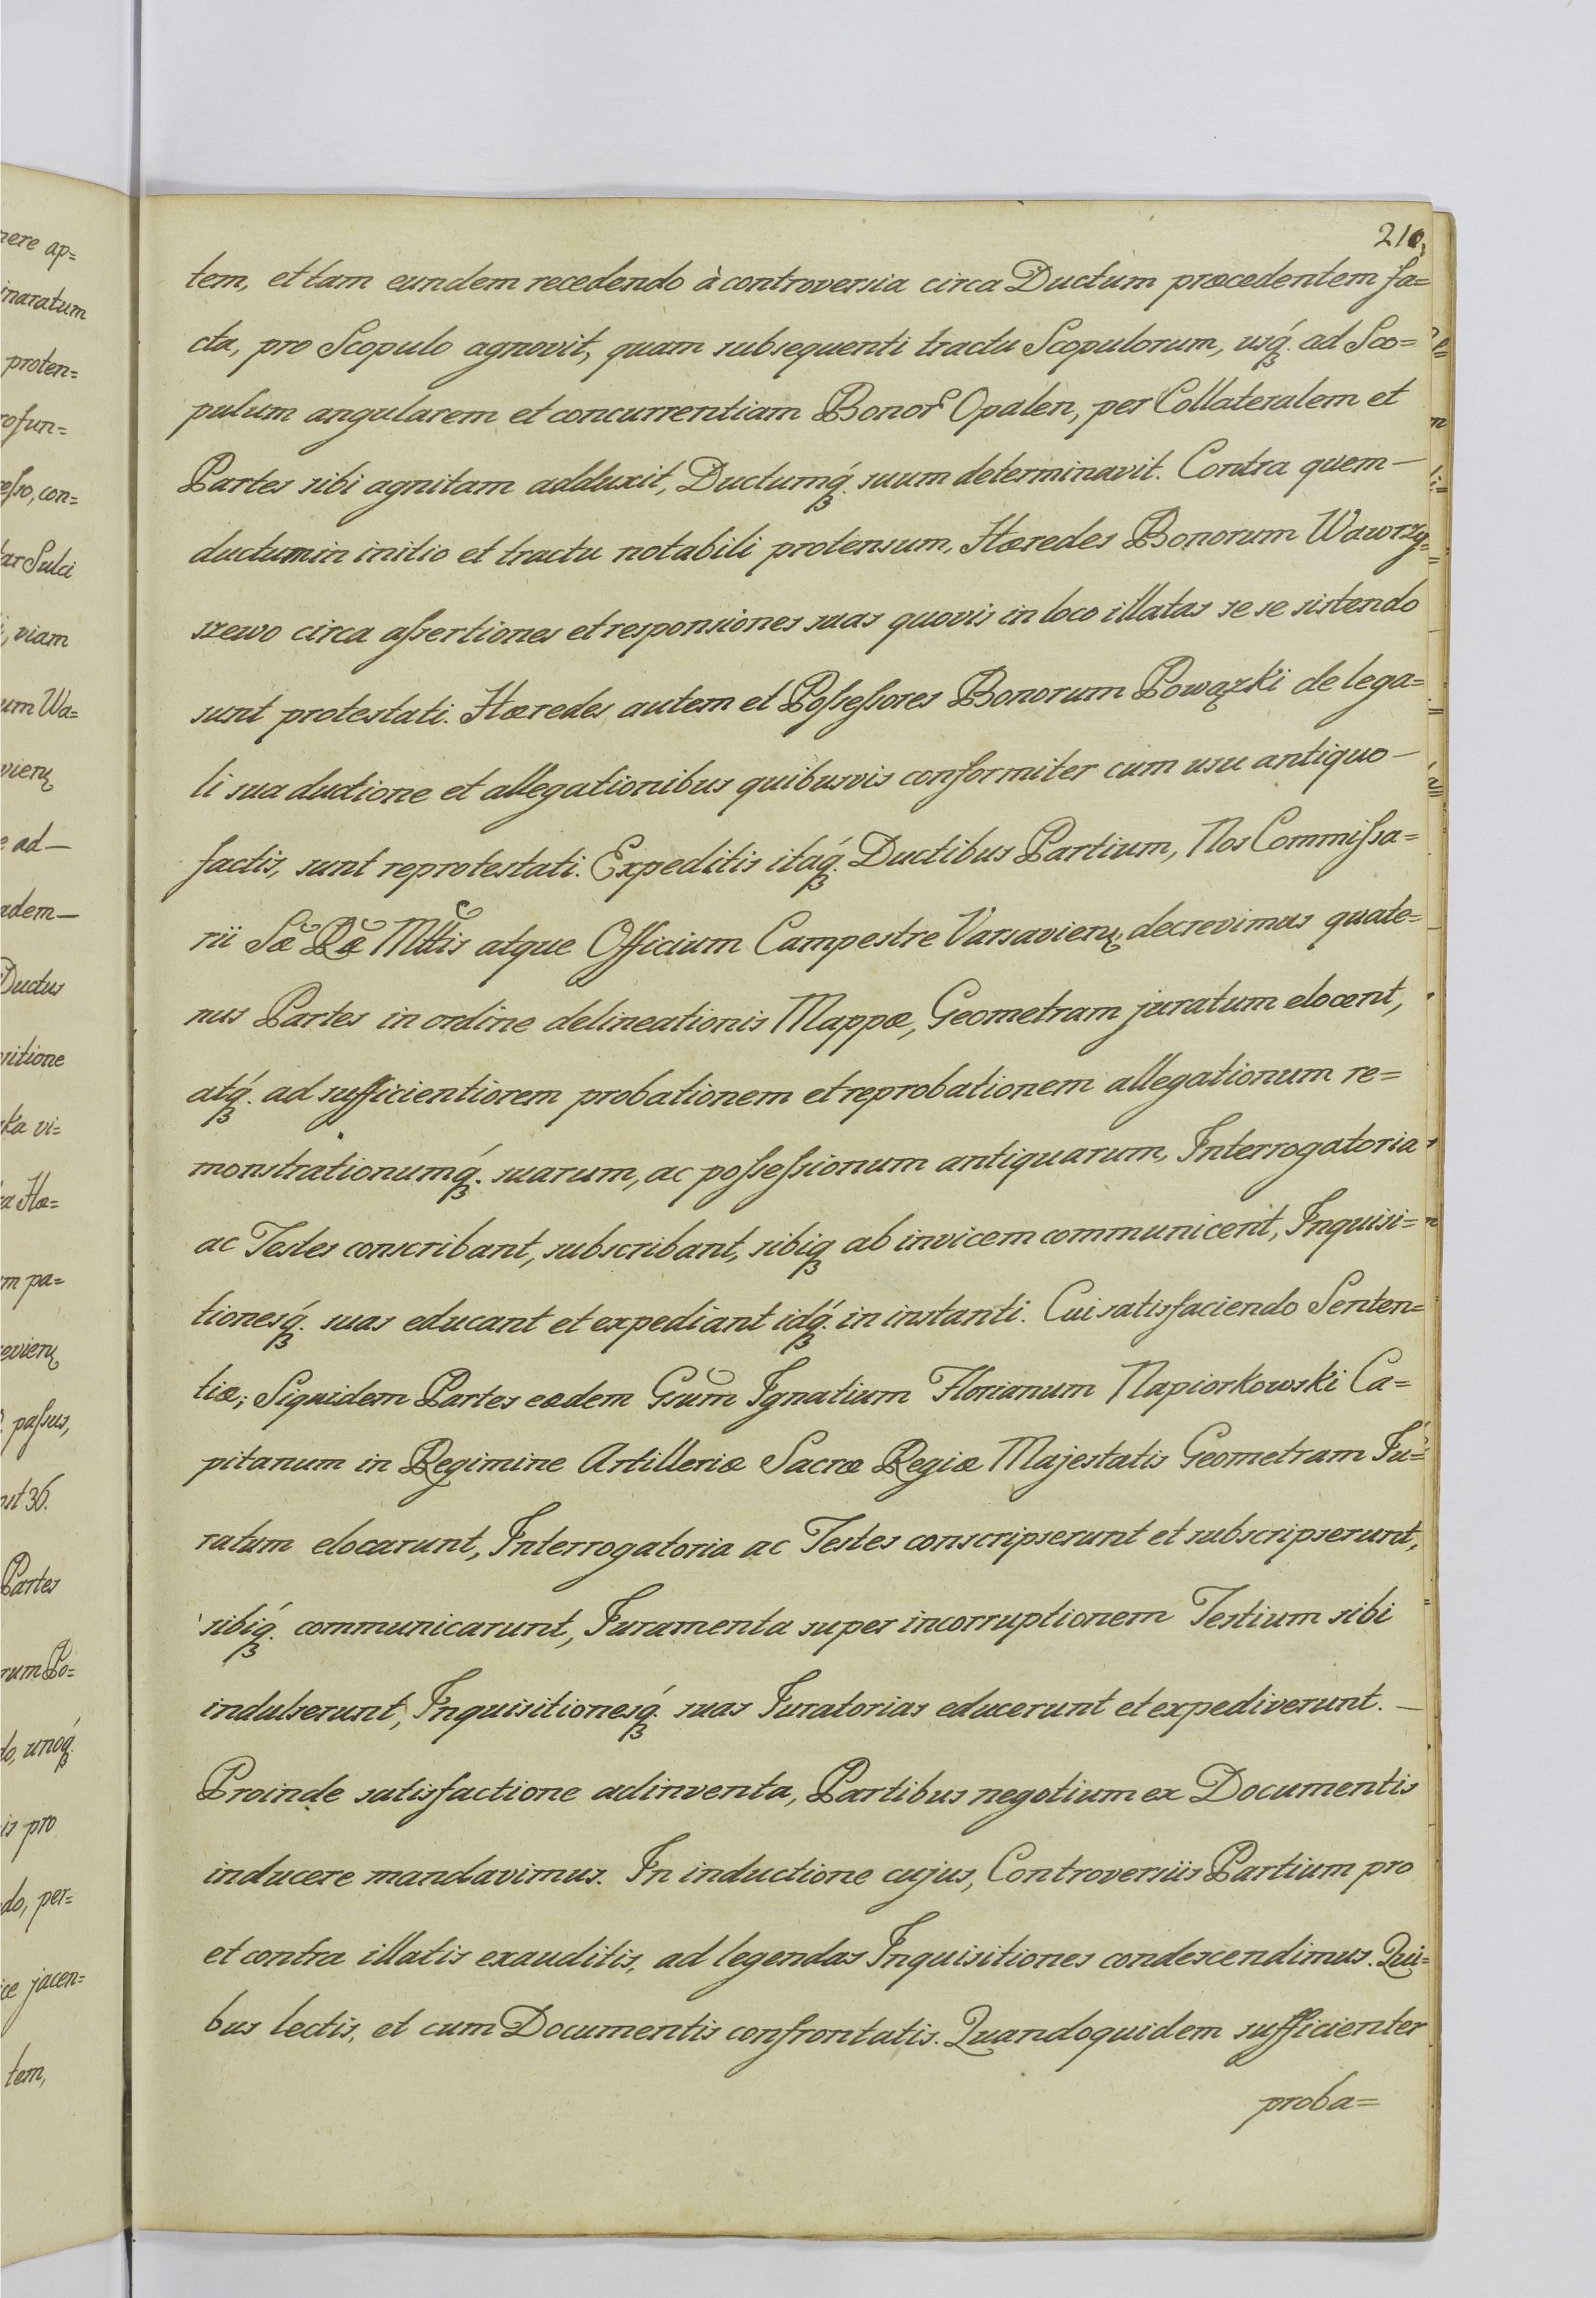 210.
tem, et tam eundem recedendo à controversia circa Ductum præcedentem fa=
cta, pro Scopulo agnovit, quam subsequenti tractu Scopulorum, usq́ꝫ. ad Sco=
pulum angularem et concurrentiam Bonor̃ Opalen, per Collateralem et
Partes sibi agnitam adduxit, Ductumq́ꝫ. suum determinavit. Contra quem—
ductum in initio et tractu notabili protensum, Hæredes Bonorum Wawrzy=
szewo circa aſsertiones et responsiones suas quovis in loco illatas se se sistendo
sunt protestati. Hæredes autem et Poſseſsores Bonorum Powązkï de lega=
li sua ductione et allegationibus quibusvis conformiter cum usu antiquo—
factis, sunt reprotestati. Expeditis itaq́ꝫ. Ductibus Partium, Nos Commiſsa=
rii Sæ̃ Ræ̃ Mttis̃ atque Officium Campestre Varsavien̨, decrevimus quate=
nus Partes in ordine delineationis Mappæ, Geometram juratum elocent,
atq́ꝫ. ad sufficientiorem probationem et reprobationem allegationum re=
monstrationumq́ꝫ. suarum, ac poſseſsionum antiquarum, Interrogatoria
ac Testes conscribant, subscribant, sibiqꝫ ab invicem communicent, Inquisi=
tionesq́ꝫ. suas educant et expediant idq́ꝫ. in instanti. Cui satisfaciendo Senten=
tiæ; Siquidem Partes eædem Gsum̃ Ignatium Florianum Napiorkowski Ca=
pitanum in Regimine Artilleriæ Sacræ Regiæ Majestatis Geometram Ju=
ratum elocarunt, Interrogatoria ac Testes conscripserunt et subscripserunt,
sibiq́ꝫ. communicarunt, Juramenta super incorruptionem Testium sibi
indulserunt, Inquisitionesq́ꝫ. suas Juratorias educerunt et expediverunt.—
Proinde satisfactione adinventa, Partibus negotium ex Documentis
inducere mandavimus. In inductione cujus, Controversiis Partium pro
et contra illatis exauditis, ad legendas Inquisitiones condescendimus. Qui=
bus lectis, et cum Documentis confrontatis. Quandoquidem sufficienter
proba=